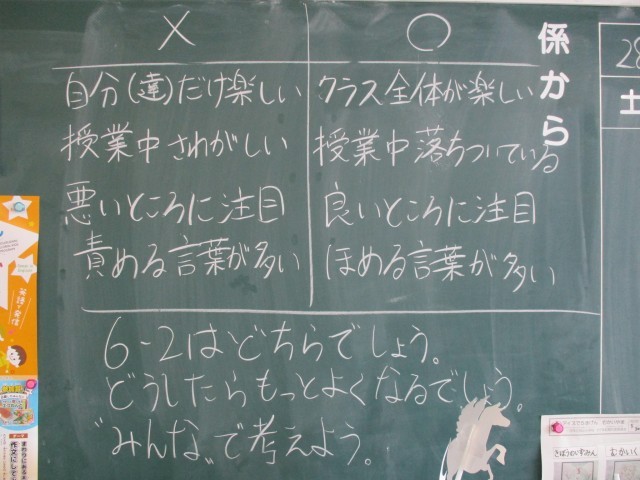 × ○
自分(達)だけ楽しい クラス全体が楽しい
授業中さわがしい 授業中落ちついている
悪いところに注目 良いところに注目
責める言葉が多い ほめる言葉が多い
6-2はどちらでしょう。
どうしたらもっとよくなるでしょう。
"みんな"で考えよう。
係から
28
土
英語で発信
作文にして
きぼうのいずみん
むかいく